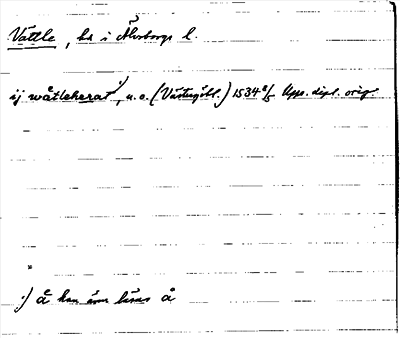 Vättle, hd i Älvsborgs l.
ij wåtleherat ¹), u.o. (Västergötl.) 1534 2/5 Upps. dipl. orig.
¹) å kan även läsas ä